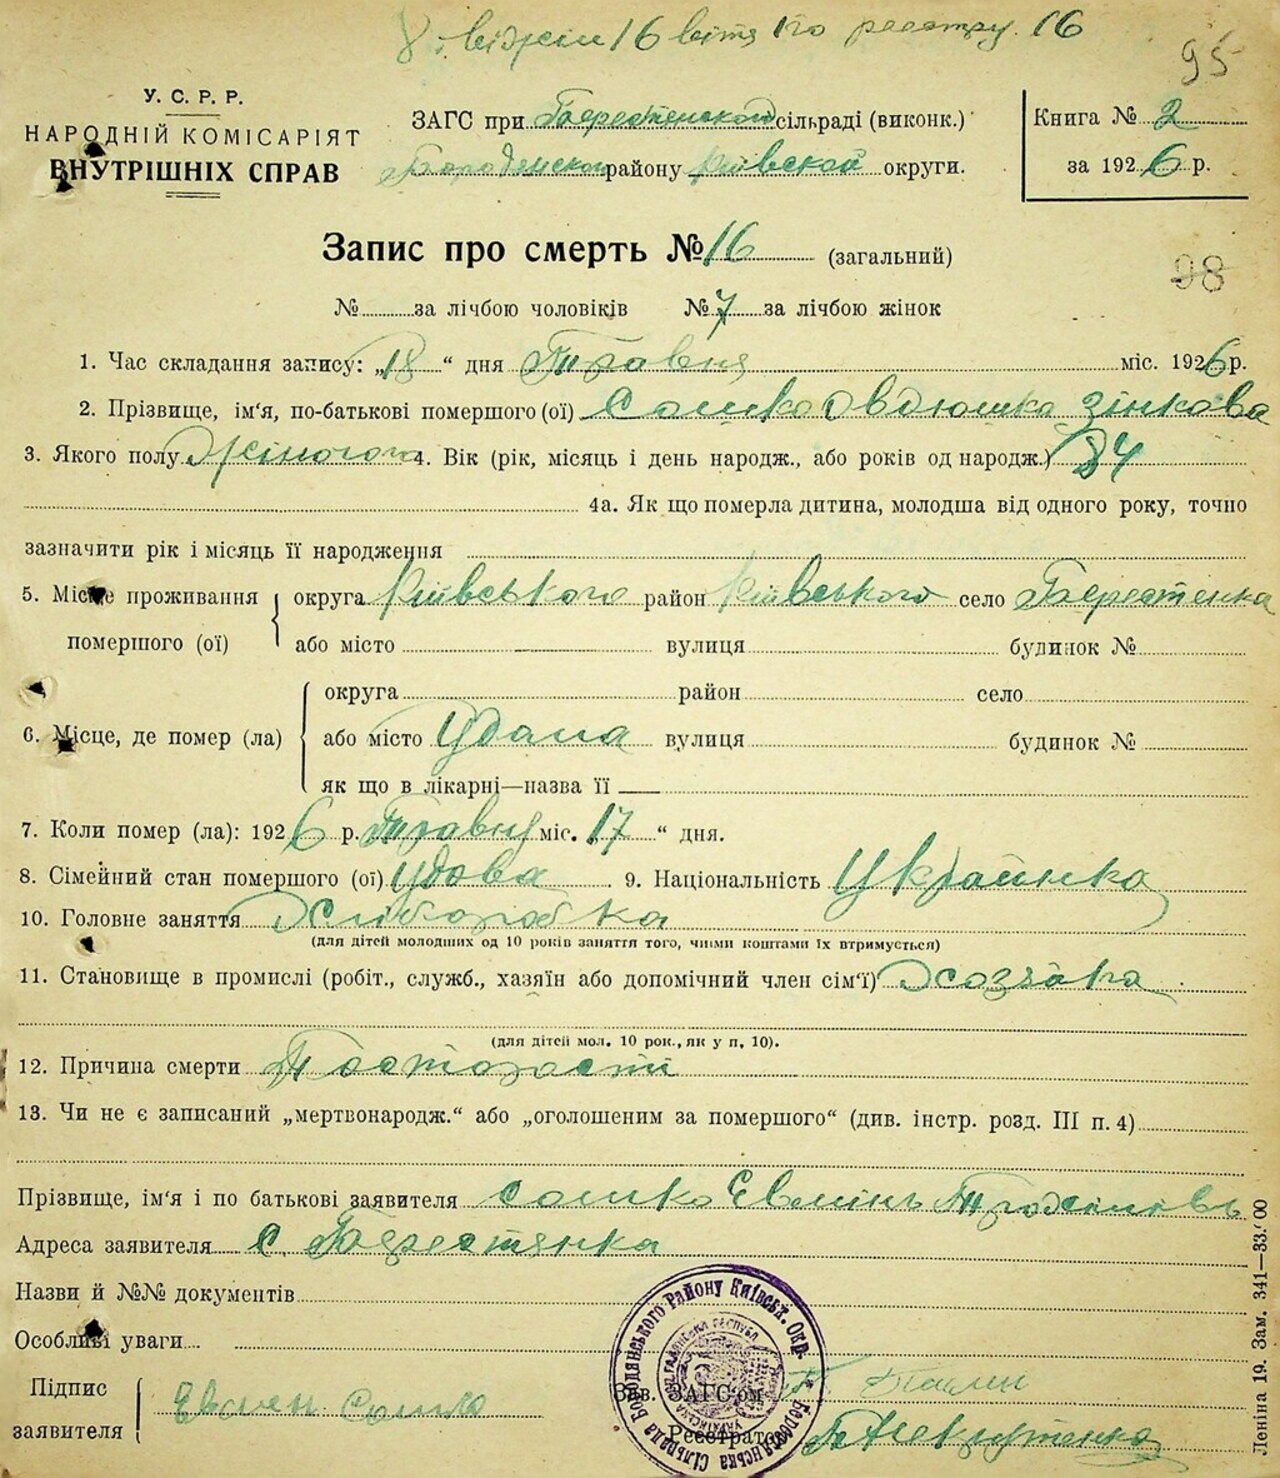 16 реєстру 16
95
У. С. Р. Р.
НАРОДНІЙ КОМІСАРІЯТ
ВНУТРІШНІХ СПРАВ
ЗАГС при сільраді (виконк.)
району округи.
Книга № 2
за 1926 р.
Запис про смерть № 16 (загальний)
98
№ за лічбою чоловіків № 7 за лічбою жінок
1. Час складання запису: „18“ дня Травня міс. 1926 р.
2. Прізвище, ім'я, по-батькові помершого (ої) Сошко Овдюшка Зінкова
3. Якого полу Жіночого 4. Вік (рік, місяць і день народж., або років од народж.) 84
4а. Як що померла дитина, молодша від одного року, точно
зазначити рік і місяць її народження
5. Місце проживання помершого (ої)
округа Київського район Київського село Берестянка
або місто вулиця будинок №
6. Місце, де помер (ла)
округа район село
або місто Удома вулиця будинок №
як що в лікарні—назва її
7. Коли помер (ла): 1926 р. Травня міс. „17“ дня.
8. Сімейний стан помершого (ої) Удова 9. Національність Українка
10. Головне заняття Хліборобка
(для дітей молодших од 10 років заняття того, чиїми коштами їх втримується)
11. Становище в промислі (робіт., служб., хазяїн або допомічний член сім'ї)
(для дітей мол. 10 рок., як у п. 10).
12. Причина смерти
13. Чи не є записаний „мертвонародж.“ або „оголошеним за помершого“ (див. інстр. розд. III п. 4)
Прізвище, ім'я і по батькові заявителя Сошко
Адреса заявителя С. Берестянка
Назви й №№ документів
Особливі уваги
Підпис заявителя Сошко
Зав. ЗАГС'ом
Реєстратор
Бородянського Району Київськ. Окр.
Сільрада
Леніна 19. Зам. 341—33.000